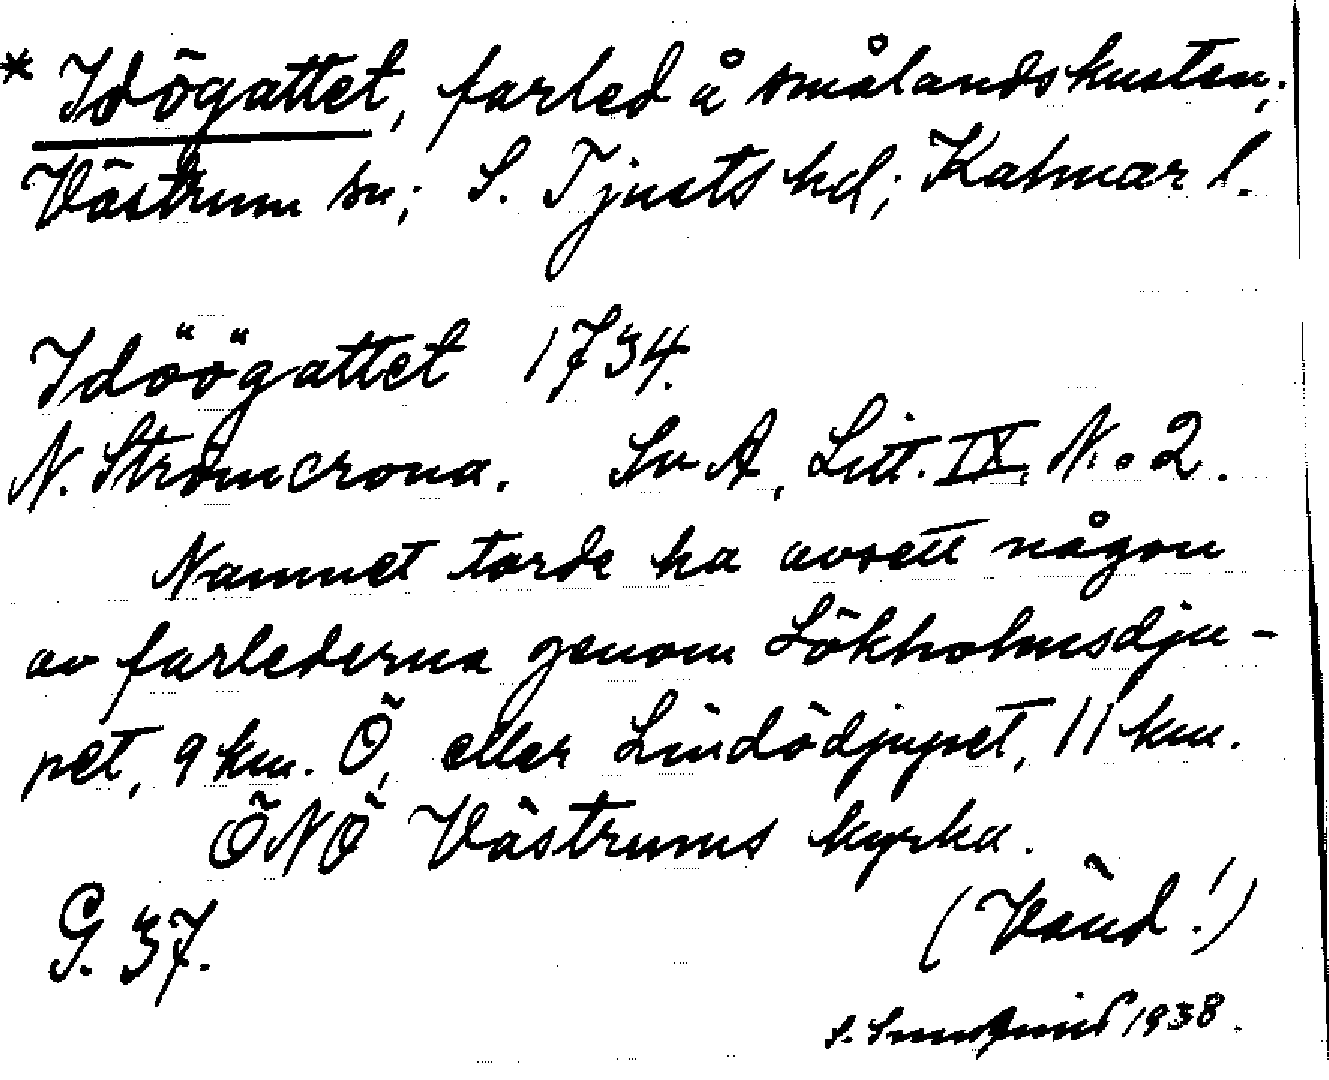 * Idögattet, farled å smålandskusten,
Västrum sn; S. Tjusts hd; Kalmar l.
Idöögattet 1734.
N. Strömcrona. Sv A, Litt. IX, N:o 2.
Namnet torde ha avsett någon
av farlederna genom Lökholmsdju-
pet, 9 km. Ö, eller Lindödjupet, 11 km.
ÖNÖ Västrums kyrka.
G. 37.
(Vänd!)
S. 1938.